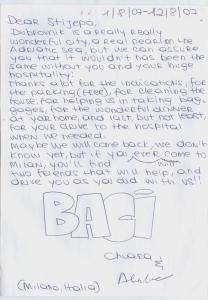 1/8/07-12/8/07
Dear Stijepo,
Dobrovnik is a really really
wonderful city, a real pearl on the
Adriatic sea, but we can assure
you that it wouldn't has been the
same without you and yours huge
hospitality!
Thanks a lot for the indications, for
the parking (free), for cleaning the
house, for helping us in taking bag,
gages, for the wonderful dinner
at your home, and last, but not least,
for your drive to the hospital
when we needed.
Maybe we will come back, we don't
know yet, but if you ever come to
Milan, you'll find
two friends that will help, and
drive you as you did with us!!
BACI
Chiara &
(Milano, Italia)